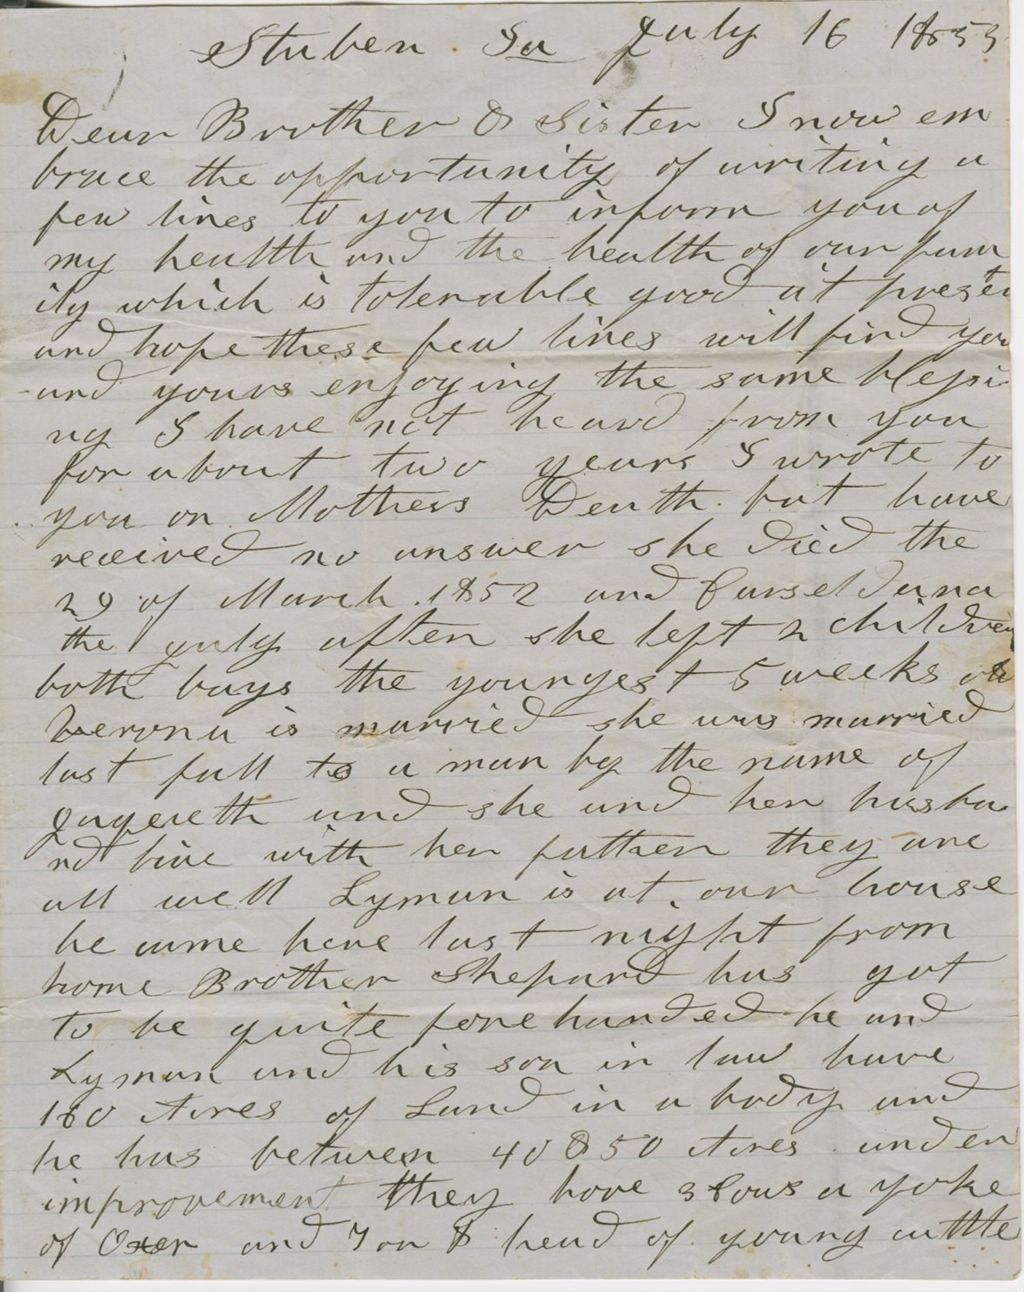 Stuben. Ia July 16 1853
Dear Brother & Sister I now em
brace the opportunity of writing a
few lines to you to inform you of
my health and the health of our fam
ily which is tolerable good at present
and hope these few lines will find you
and yours enjoying the same blessi
ng I have not heard from you
for about two years I wrote to
you on Mothers Death but have
received no answer she died the
29 of March 1852 and
the July after she left 2 children
both boys the youngest 5 weeks old
is married she was married
last fall to a man by the name of
and she and her husba
nd live with her father they are
all well Lyman is at our house
he came here last night from
home Brother Shepard has got
to be quite fore handed he and
Lyman and his son in law have
160 Acres of Land in a body and
he has between 40 & 50 Acres under
improvement they have 3 Cows a yoke
of Oxen and 7 or 8 head of young cattle